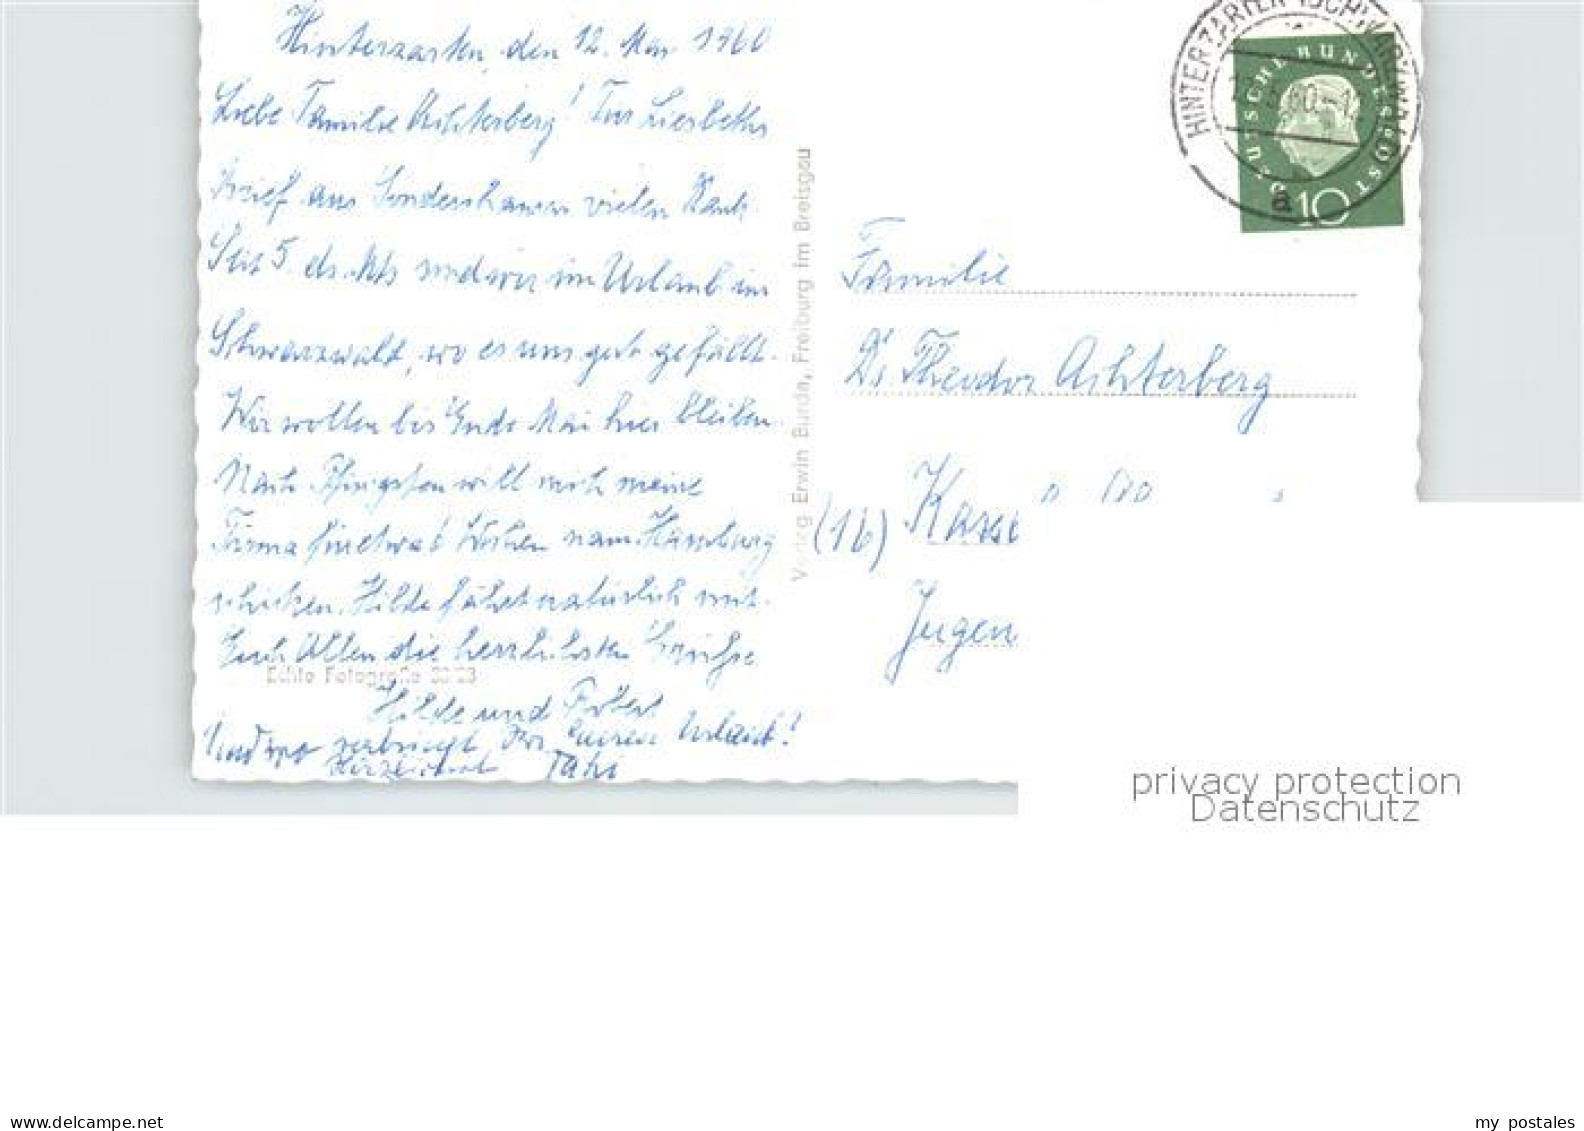 Hinterzarten, den 12. Mai 1960
Liebe Familie Achterberg! Für Liesbeths
Brief aus Sondershausen vielen Dank.
Seit 5. ds. Mts sind wir im Urlaub im
Schwarzwald, wo es uns gut gefällt.
Wir wollen bis Ende Mai hier bleiben.
Nach Pfingsten will mich meine
Firma für etwa 6 Wochen nach Hamburg
schicken. Hilde fährt natürlich mit.
Euch Allen die herzlichsten Grüsse
Hilde und
Und wo verbringt Ihr Euren Urlaub?
Echte Fotografie
Verlag Erwin Burda, Freiburg im Breisgau
HINTERZARTEN (SCHWARZWALD)
a
DEUTSCHE BUNDESPOST
10
Familie
Dr. Theodor Achterberg
(16) Kasse
Jugen
privacy protection
Datenschutz
www.delcampe.net
my postales